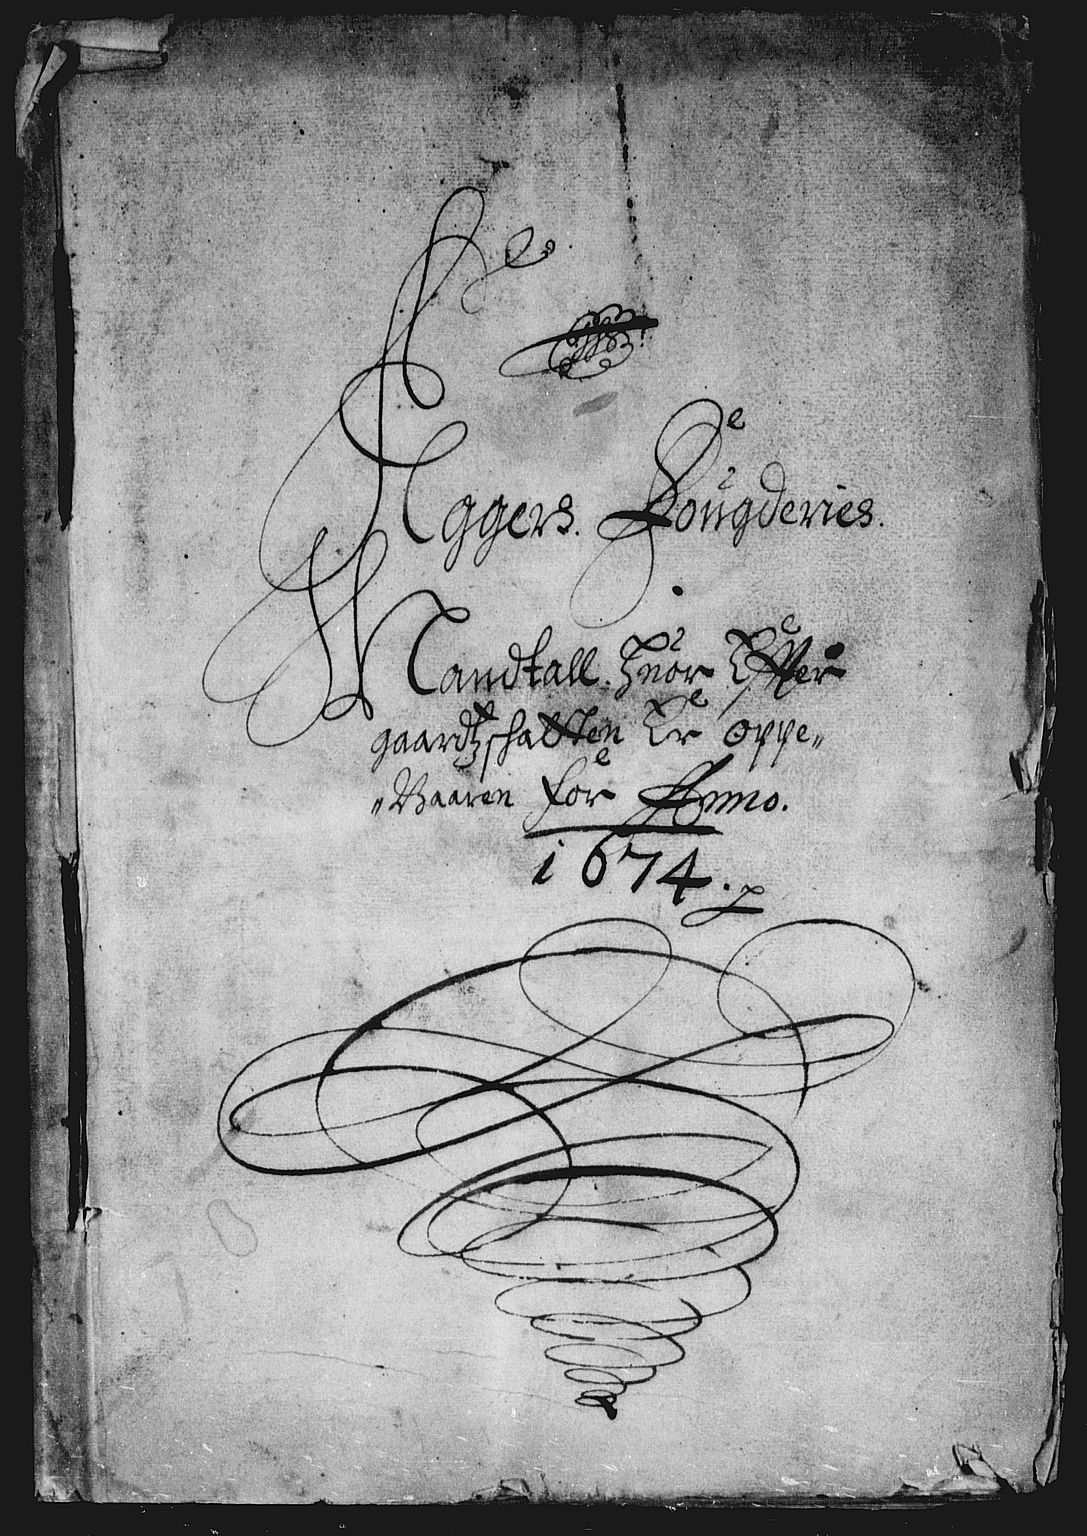 Aggers. Fougderies.
Mandtall. Huor Effter
gaardschatten Er oppe„
„Baaren for Anno.
1674.